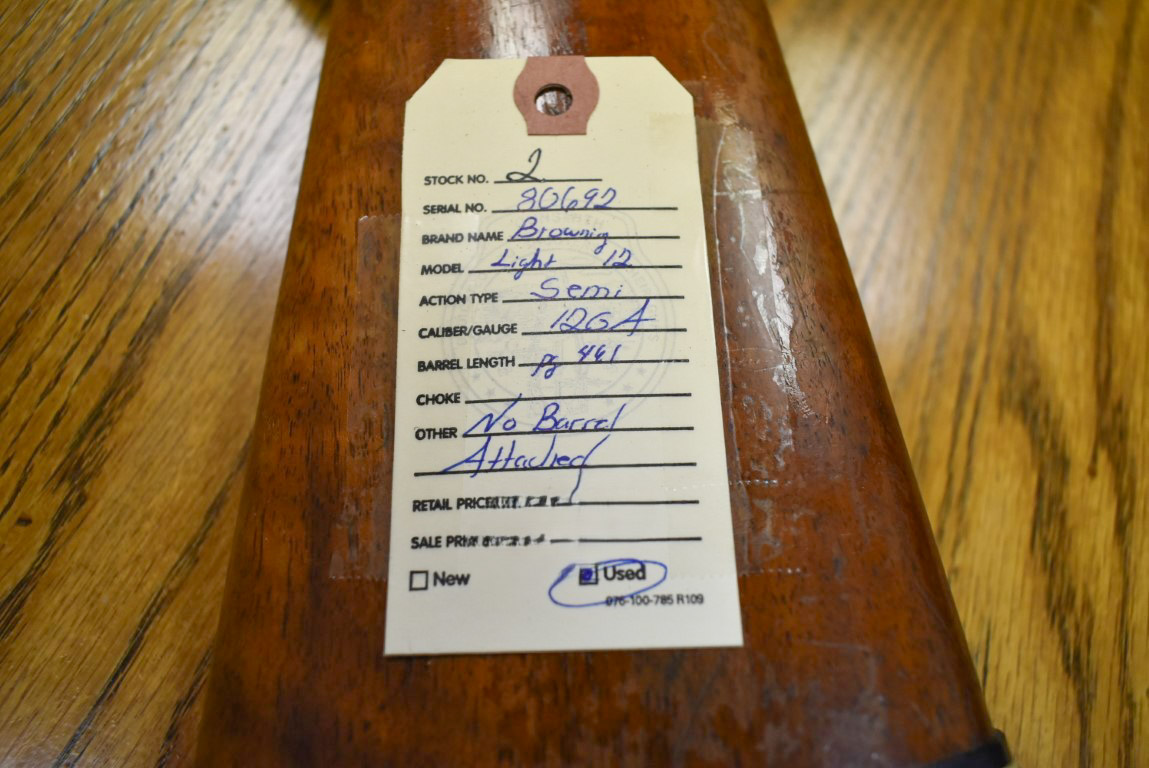 STOCK NO. 2
SERIAL NO. 80692
BRAND NAME Browning
MODEL Light 12
ACTION TYPE Semi
CALIBER/GAUGE 12GA
BARREL LENGTH pg 461
CHOKE
OTHER No Barrel
Attached
RETAIL PRICE
SALE PRI
New Used
076-100-785 R109